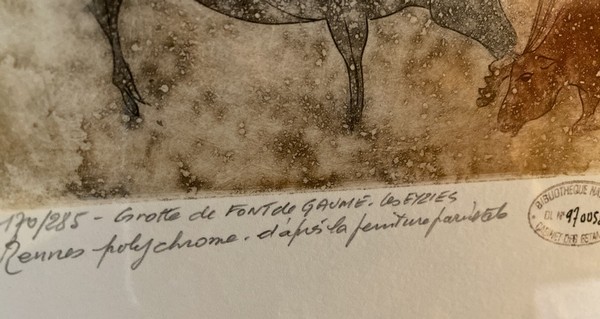 170/285 - Grotte de FONT de GAUME. Les EYZIES
Rennes polychrome. d'après la peinture pariétale
BIBLIOTHEQUE NA
DL N° 97005
CABINET DES ESTAM